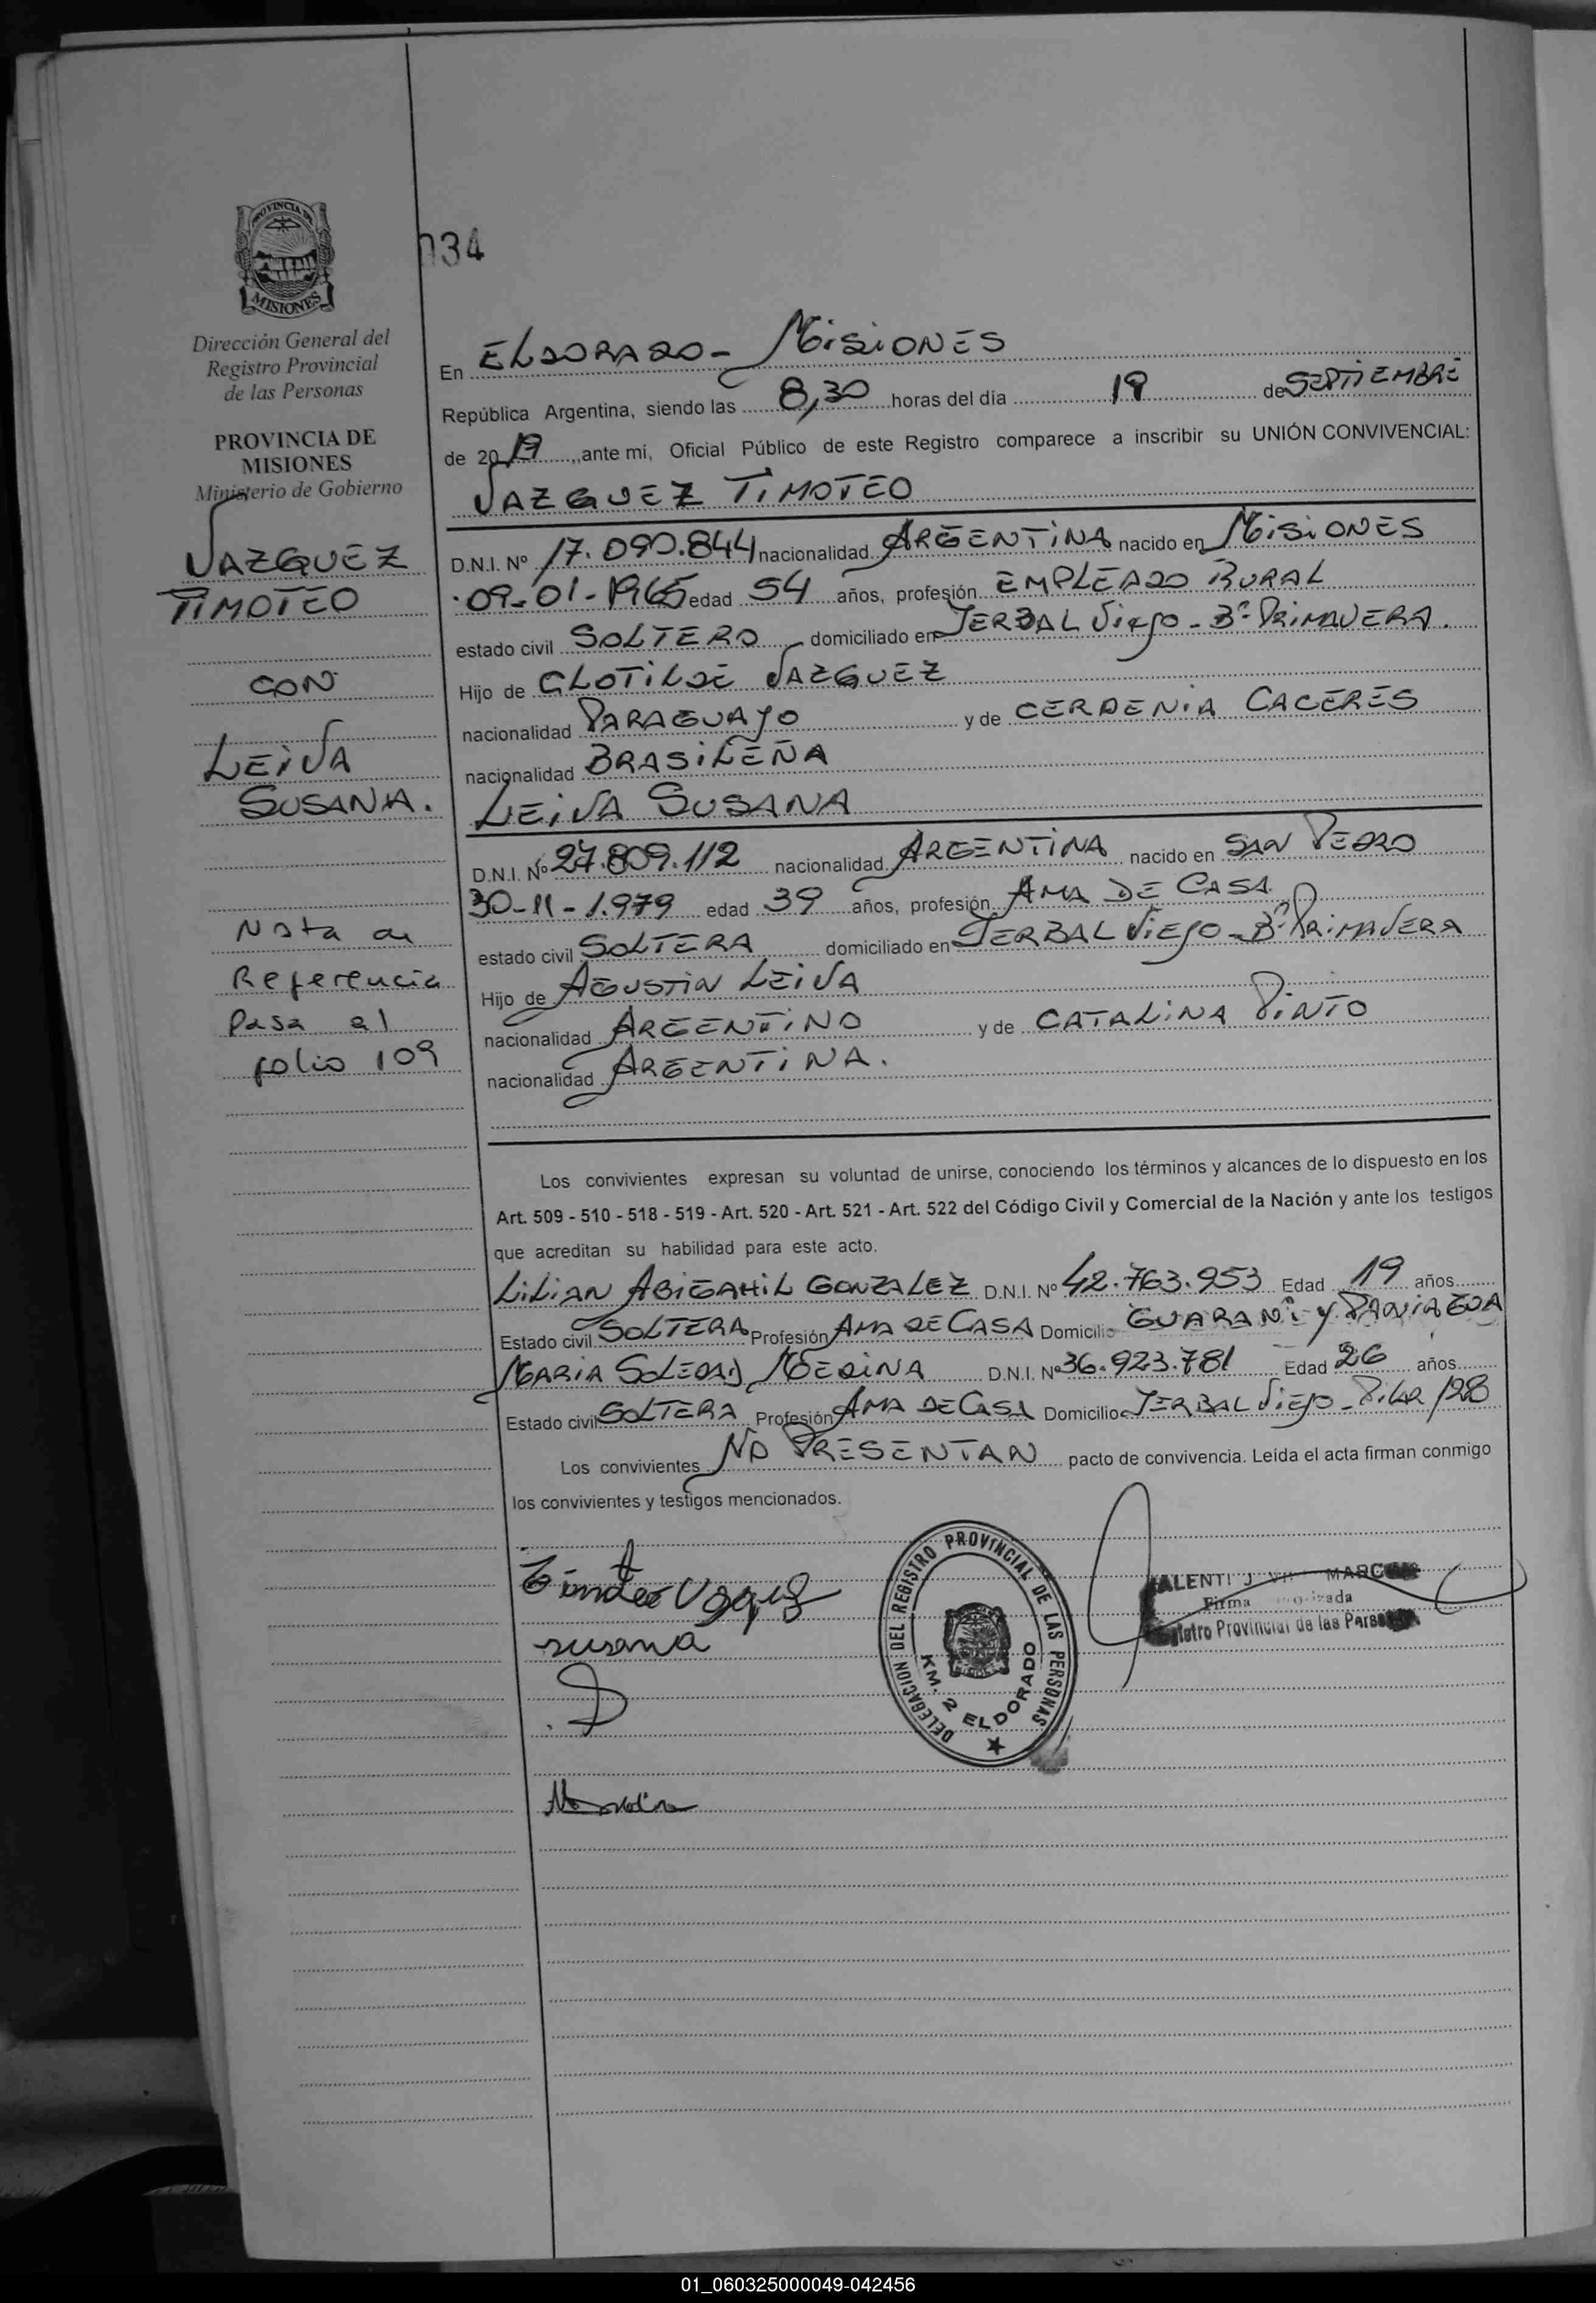 PROVINCIA DE
MISIONES
Dirección General del
Registro Provincial
de las Personas
PROVINCIA DE
MISIONES
Ministerio de Gobierno
VAZQUEZ
TIMOTEO
CON
LEIVA
SUSANA.
Nota de
Referencia
Pasa al
folio 109
034
En ELDORADO - MISIONES
República Argentina, siendo las 8,30 horas del día 19 de SEPTIEMBRE
de 2019, ante mi, Oficial Público de este Registro comparece a inscribir su UNIÓN CONVIVENCIAL:
VAZQUEZ TIMOTEO
D.N.I. Nº 17.090.844 nacionalidad ARGENTINA nacido en MISIONES
09-01-1965 edad 54 años, profesión EMPLEADO RURAL
estado civil SOLTERO domiciliado en YERBAL VIEJO - Bº PRIMAVERA.
Hijo de CLOTILDE VAZQUEZ
nacionalidad PARAGUAYO y de CERDENIA CACERES
nacionalidad BRASILEÑA
LEIVA SUSANA
D.N.I. Nº 27.809.112 nacionalidad ARGENTINA nacido en SAN PEDRO
30-11-1.979 edad 39 años, profesión AMA DE CASA
estado civil SOLTERA domiciliado en YERBAL VIEJO - Bº PRIMAVERA
Hijo de AGUSTIN LEIVA
nacionalidad ARGENTINO y de CATALINA PINTO
nacionalidad ARGENTINA.
Los convivientes expresan su voluntad de unirse, conociendo los términos y alcances de lo dispuesto en los
Art. 509 - 510 - 518 - 519 - Art. 520 - Art. 521 - Art. 522 del Código Civil y Comercial de la Nación y ante los testigos
que acreditan su habilidad para este acto.
LILIAN ABIGAHIL GONZALEZ D.N.I. Nº 42.763.953 Edad 19 años
Estado civil SOLTERA Profesión AMA DE CASA Domicilio GUARANI Y
MARIA SOLEDAD MEDINA D.N.I. Nº 36.923.781 Edad 26 años
Estado civil SOLTERA Profesión AMA DE CASA Domicilio YERBAL VIEJO -
Los convivientes NO PRESENTAN pacto de convivencia. Leída el acta firman conmigo
los convivientes y testigos mencionados.
susana
DELEGACION DEL REGISTRO PROVINCIAL DE LAS PERSONAS
KM. 2 ELDORADO
Firma
Provincial de las
01_060325000049-042456